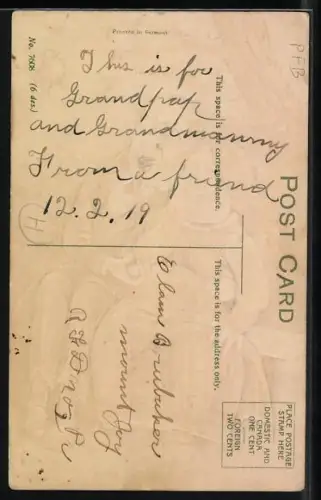 Printed in Germany
No. 7608 (6 des.)
This is for
Grandpap
and Grandmammy
From a friend
12.2.19
This space is for correspondence.
POST CARD
This space is for the address only.
PLACE POSTAGE
STAMP HERE
DOMESTIC AND
CANADA
ONE CENT
FOREIGN
TWO CENTS
Elam Brubaker
mount Joy
PFB
H